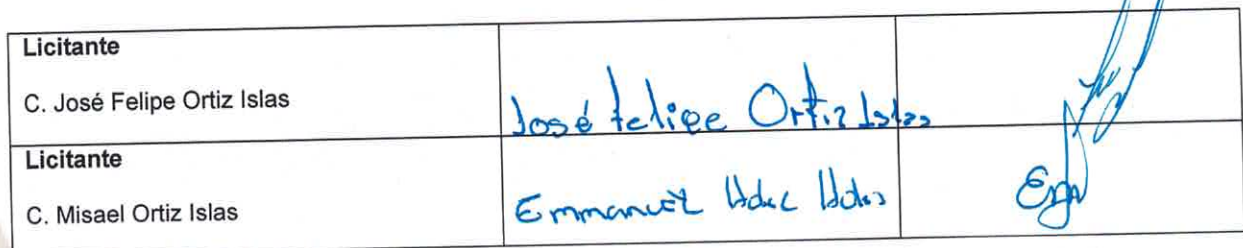 Licitante
C. José Felipe Ortiz Islas
José Felipe Ortiz Islas
Licitante
C. Misael Ortiz Islas
Emmanuel